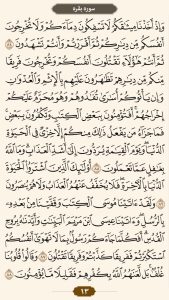 سوره بقره
وَإِذْ أَخَذْنَا مِيثَاقَكُمْ لَا تَسْفِكُونَ دِمَاءَكُمْ وَلَا تُخْرِجُونَ
أَنْفُسَكُمْ مِنْ دِيَارِكُمْ ثُمَّ أَقْرَرْتُمْ وَأَنْتُمْ تَشْهَدُونَ ﴿٨٤﴾
ثُمَّ أَنْتُمْ هَٰؤُلَاءِ تَقْتُلُونَ أَنْفُسَكُمْ وَتُخْرِجُونَ فَرِيقًا
مِنْكُمْ مِنْ دِيَارِهِمْ تَظَاهَرُونَ عَلَيْهِمْ بِالْإِثْمِ وَالْعُدْوَانِ
وَإِنْ يَأْتُوكُمْ أُسَارَىٰ تُفَادُوهُمْ وَهُوَ مُحَرَّمٌ عَلَيْكُمْ
إِخْرَاجُهُمْ أَفَتُؤْمِنُونَ بِبَعْضِ الْكِتَابِ وَتَكْفُرُونَ بِبَعْضٍ
فَمَا جَزَاءُ مَنْ يَفْعَلُ ذَٰلِكَ مِنْكُمْ إِلَّا خِزْيٌ فِي الْحَيَاةِ
الدُّنْيَا وَيَوْمَ الْقِيَامَةِ يُرَدُّونَ إِلَىٰ أَشَدِّ الْعَذَابِ وَمَا اللَّهُ
بِغَافِلٍ عَمَّا تَعْمَلُونَ ﴿٨٥﴾ أُولَٰئِكَ الَّذِينَ اشْتَرَوُا الْحَيَاةَ
الدُّنْيَا بِالْآخِرَةِ فَلَا يُخَفَّفُ عَنْهُمُ الْعَذَابُ وَلَا هُمْ يُنْصَرُونَ
﴿٨٦﴾ وَلَقَدْ آتَيْنَا مُوسَى الْكِتَابَ وَقَفَّيْنَا مِنْ بَعْدِهِ
بِالرُّسُلِ وَآتَيْنَا عِيسَى ابْنَ مَرْيَمَ الْبَيِّنَاتِ وَأَيَّدْنَاهُ بِرُوحِ
الْقُدُسِ أَفَكُلَّمَا جَاءَكُمْ رَسُولٌ بِمَا لَا تَهْوَىٰ أَنْفُسُكُمُ
اسْتَكْبَرْتُمْ فَفَرِيقًا كَذَّبْتُمْ وَفَرِيقًا تَقْتُلُونَ ﴿٨٧﴾ وَقَالُوا قُلُوبُنَا
غُلْفٌ بَلْ لَعَنَهُمُ اللَّهُ بِكُفْرِهِمْ فَقَلِيلًا مَا يُؤْمِنُونَ ﴿٨٨﴾
۱۳